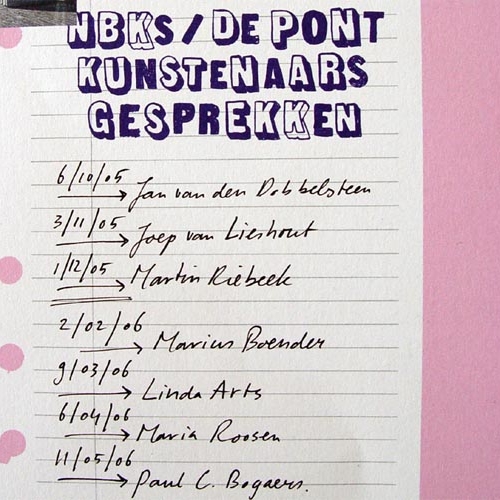 NBKS / DE PONT
KUNSTENAARS
GESPREKKEN
6/10/05
→ Jan van den Dobbelsteen
3/11/05
→ Joep van Lieshout
1/12/05
→ Martin Riebeek
2/02/06
→ Marius Boender
9/03/06
→ Linda Arts
6/04/06
→ Maria Roosen
11/05/06
→ Paul C. Bogaers.